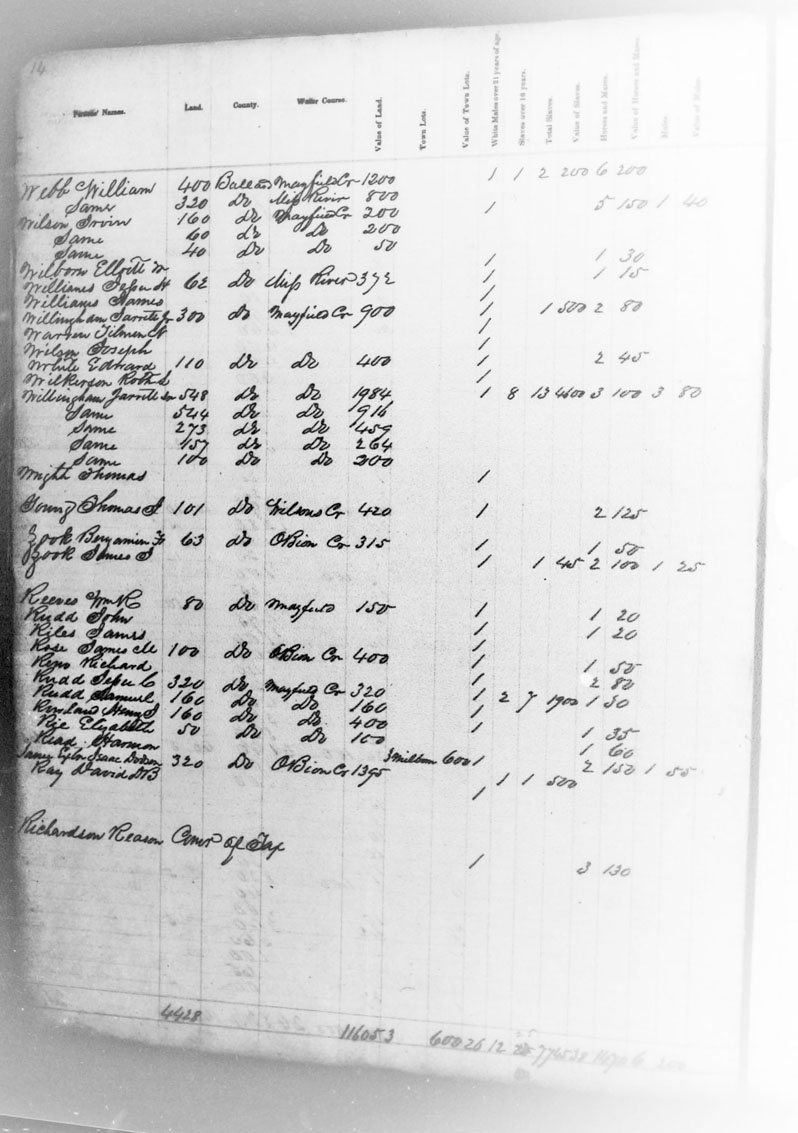 14
Persons' Names. Land. County. Water Course. Value of Land. Town Lots. Value of Town Lots. White Males over 21 years of age. Slaves over 16 years. Total Slaves. Value of Slaves. Horses and Mares. Value of Horses and Mares. Mules. Value of Mules.
Webb William 400 Ballard Mayfield Cr 1200 1 1 2 200 6 200
Same 320 Do Miss River 800
Wilson Irvin 160 Do Mayfield Cr 200 1 5 150 1 40
Same 60 do Do 200
Same 40 Do Do 50
Wilborn Elliott M 1 1 30
Williams Jesse H 62 Do Miss River 372 1 1 15
Williams James 1
Willingham Jarrette Jr 300 do Mayfield Cr 900 1 1 500 2 80
Warren Tilmon H 1
Wilson Joseph 1
White Edward 110 do Do 400 1 2 45
Wilkerson 1
Willingham Jarrette Sr 548 do Do 1984 1 8 13 4600 3 100 3 80
Same 544 do Do 916
Same 273 do Do 459
Same 157 do Do 264
Same 100 Do Do 200
Wright Thomas 1
Young Thomas J 101 Do Wilsons Cr 420 1 2 125
Zook Benjamin 63 do OBion Cr 315 1 1 50
Zook James J 1 1 45 2 100 1 25
Reeves Wm R 80 Do Mayfield 150 1
Rudd John 1 1 20
Riles James 1 1 20
Rose James M 100 Do OBion Cr 400 1
Repo Richard 1 1 50
Rudd Jesse C 320 Do Mayfield Cr 320 1 2 80
Rudd Samuel 160 Do Do 160 1 2 7 1900 1 30
Rowland Henry J 160 Do Do 400 1
Rice Elizabeth 50 Do Do 100 1 35
Read Harmon 1 60
Same Isaac Dodson 320 Do OBion Cr 1395 3 Milburn 600 1 2 150 1 55
Ray David 1 1 1 500
Richardson Reason Comr of Tax 1 3 130
4428 116053 600 26 12 25 38 1670 6 200